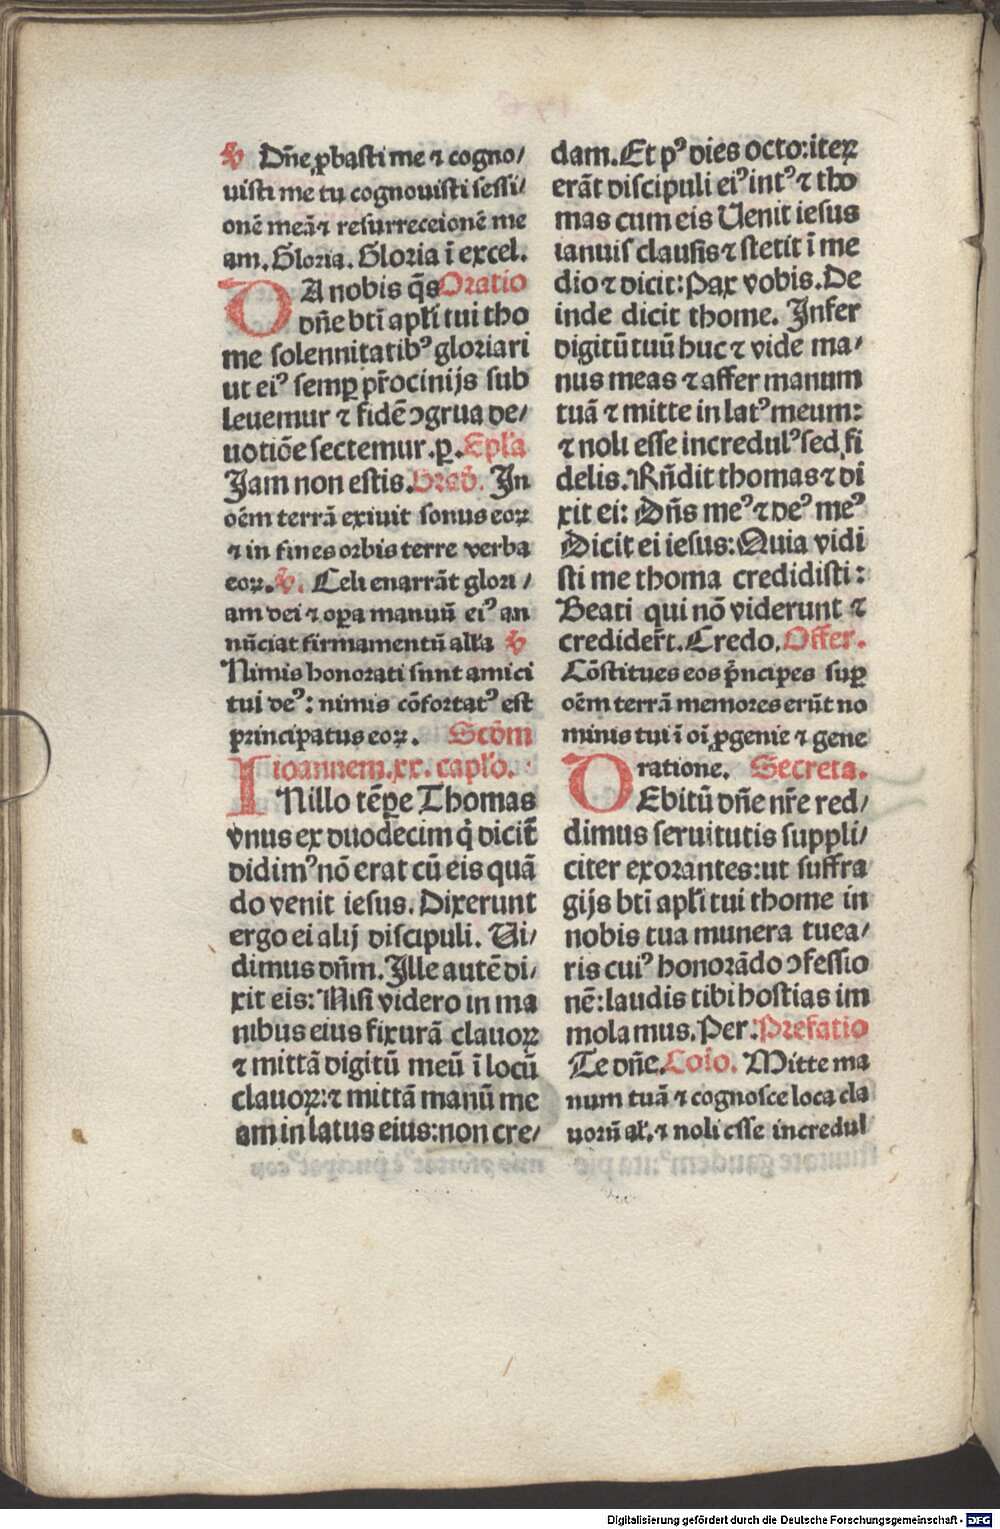 ℣ Dñe ꝓbasti me ⁊ cogno/
uisti me tu cognouisti sessi/
onē meā⁊ resurreceionē me
am. Gloria. Gloria ī excel.
DA nobis q̄s Oratio
dñe btī apłi tui tho
me solennitatibꝰ gloriari
ut eiꝰ semꝑ pr̄ocinijs sub
leuemur ⁊ fidē ꝯgrua de/
uotiōe sectemur.ꝑ. Epła
Jam non estis. Grad̄. In
oēm terrā exiuit sonus eoꝝ
⁊ in fines orbis terre verba
eoꝝ. ℣. Celi enarrāt glori/
am dei ⁊ oꝑa manuū eiꝰ an
nūciat firmamentū ałła ℣
Nimis honorati sunt amici
tui deꝰ: nimis cōfortatꝰ est
principatus eoꝝ. Scd̄m
ioannem.xx. capło.
INillo tēꝑe Thomas
vnus ex duodecim q̇ dicit̄
didimꝰ nō erat cū eis quā
do venit iesus. Dixerunt
ergo ei alij discipuli. Ui/
dimus dn̄m. Ille autē di/
xit eis: Nisi videro in ma
nibus eius fixurā clauoꝝ
⁊ mittā digitū meū ī locū
clauoꝝ:⁊ mittā manū me
am in latus eius:non cre/
dam. Et pꝰ dies octo:iteꝝ
erāt discipuli eiꝰ intꝰ ⁊ tho
mas cum eis Uenit iesus
ianuis clausis ⁊ stetit ī me
dio ⁊ dicit: Pax vobis. De
inde dicit thome. Infer
digitū tuū huc ⁊ vide ma/
nus meas ⁊ affer manum
tuā ⁊ mitte in latꝰ meum:
⁊ noli esse incredulꝰ sed fi
delis. Rn̄dit thomas ⁊ di
xit ei: Dn̄s meꝰ ⁊ deꝰ meꝰ
Dicit ei iesus: Quia vidi
sti me thoma credidisti:
Beati qui nō viderunt ⁊
credider̄t. Credo. Offer.
Cōstitues eos p̄ncipes suꝑ
oēm terrā memores erūt no
minis tui ī oī ꝓgenie ⁊ gene
ratione. Secreta.
DEbitū dñe nr̄e red/
dimus seruitutis suppli/
citer exorantes:ut suffra
gijs btī apłi tui thome in
nobis tua munera tuea/
ris cuiꝰ honorādo ꝯfessio
nē:laudis tibi hostias im
molamus. Per: Prefatio
Te dñe. Cōio. Mitte ma
num tuā ⁊ cognosce loca cla
uorū ał.⁊ noli esse incredul
Digitalisierung gefördert durch die Deutsche Forschungsgemeinschaft - DFG